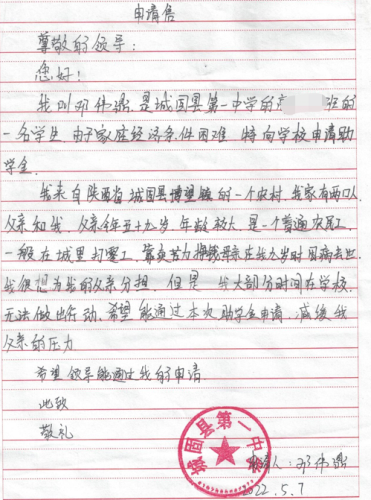 申请书
尊敬的领导：
您好！
我叫邓伟鼎，是城固县第一中学的高 班的
一名学生，由于家庭经济条件困难，特向学校申请助
学金。
我来自陕西省城固县博望镇的一个农村，我家有两口人，
父亲和我，父亲今年五十九岁，年龄较大，是一个普通农民工，
一般在城里打零工，靠卖苦力 在我九岁时因病去世，
我很想为我的父亲分担，但是，我大部分时间在学校，
无法做出行动，希望能通过本次助学金申请，减缓我
父亲的压力
希望领导能通过我的申请
此致
敬礼
城固县第一中学
申请人：邓伟鼎
2022.5.7